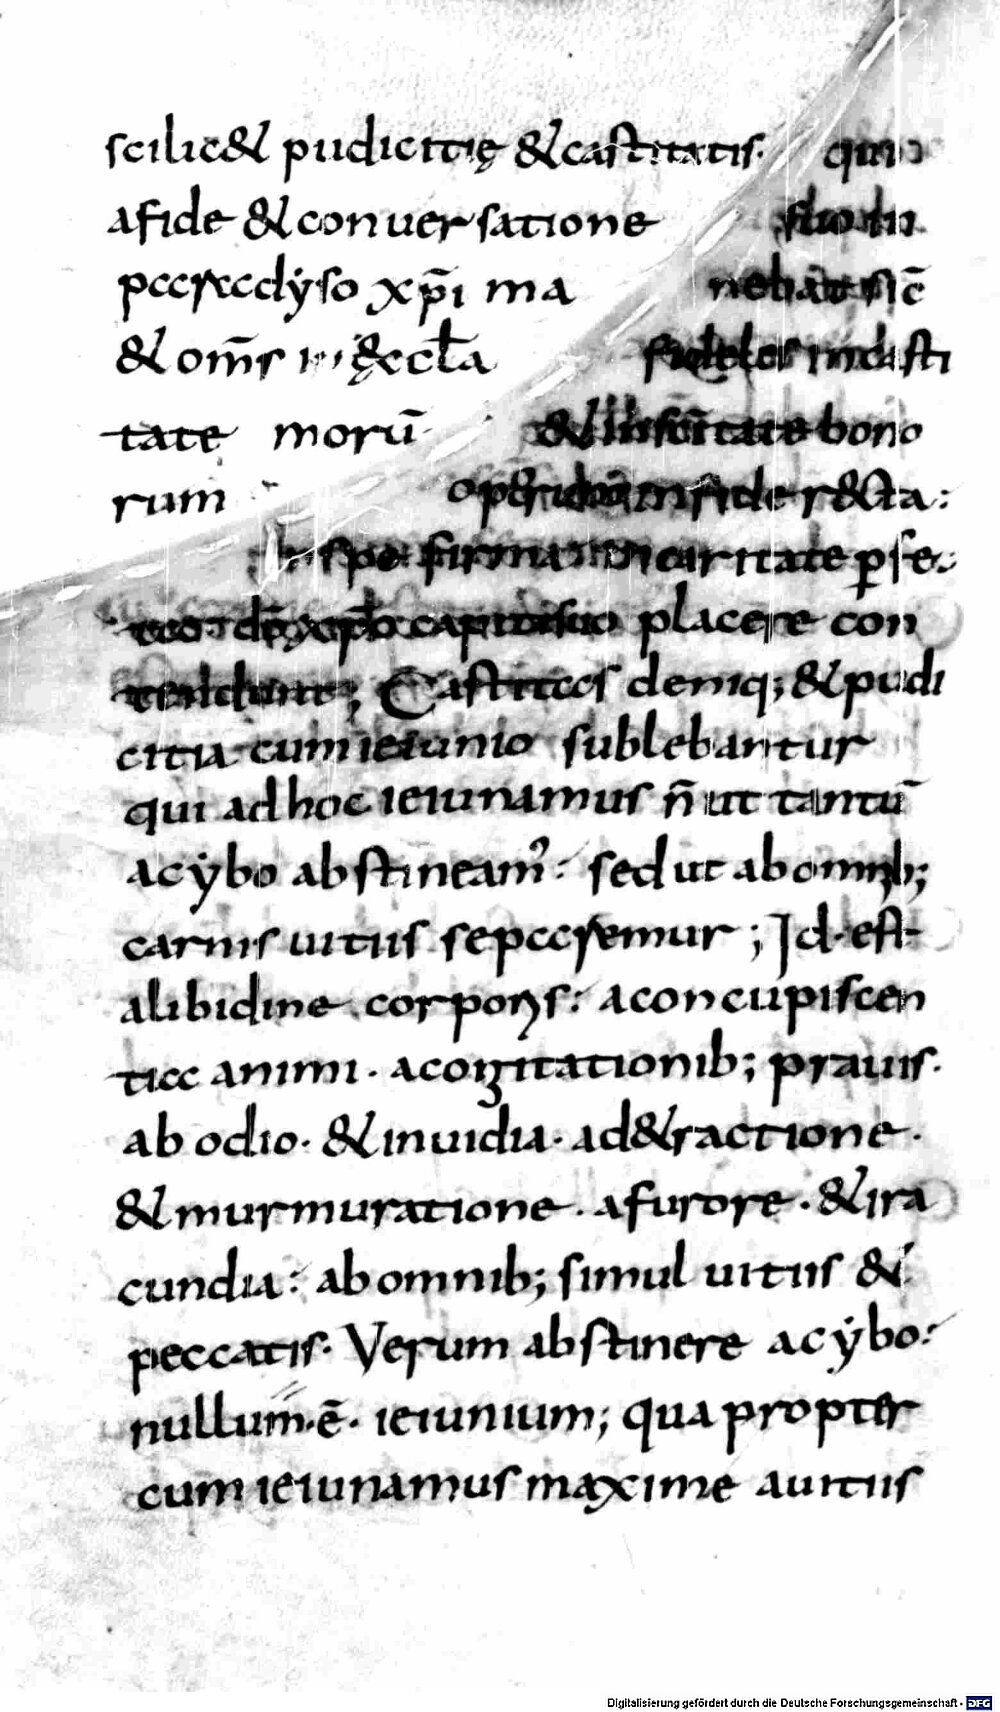 scilic& pudicitię & castitatis· quia
a fide & conuersatione sua in
paradyso xp̄i manebat sic̄
& om̄s in ęccl̄a fideles in casti
tate morū & in scītate bono
rum operibus in fide r&cta:
In spe firma in caritate p̱fe
cto dō xp̄o capiti suo placere con
tendunt; Castitas deniq; & pudi
citia cum ieiunio sublebantur
qui ad hoc ieiunamus n̄ ut tantū
a cẏbo abstineam᾿: sed ut ab omnib;
carnis uitiis separemur; Id·est·
a libidine corporis: a concupiscen
tia animi· a cogitationib; prauis·
ab odio· & inuidia· a d&ractione·
& murmuratione· a furore· & ira
cundia: ab omnib; simul uitiis &
peccatis· Verum abstinere a cẏbo:
nullum·ē· ieiunium; qua propter
cum ieiunamus maxime a uitiis
Digitalisierung gefördert durch die Deutsche Forschungsgemeinschaft - DFG